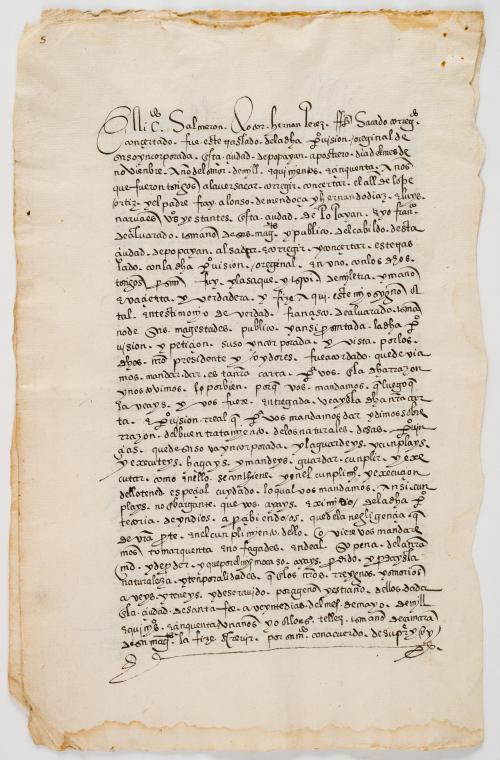 5
El liçdo Salmeron. dotor. hernan Perez. Sacado corregdo
concertado. fue este traslado. de la dha provision / oreginal de
suso yncorporada. esta. ciudad. de popayan. a postrero. dia del mes de
novienbre. Año del señor. de mill. e quinientos. e çinquenta. Años
que fueron tstigos a la ver sacar. corregir. concertar. el all de lope
ortiz y el padre fray. alonso. de mendoca y hernando diaz. e luys.
narvaez vos yestantes. esta. ciudad. de Popayan. e yo franco
de alvarado. escrivano de sus. magts y publico. del cabildo. desta
ciudad. de popayan. al sacar. e corregir. y concertar. este tras
lado. con la dha provision / oreginal. en uno. con los dhos.
testigos fuy. y lo saque. y escrevi de my letra. y mano
y verdadera. y fize Aqui. este mi sygno. A
tal. en testimonyo de verdad. françisco. de alvarado. escriva
no de Sus. magestades. publico. y ansi presentada. la dha pro
vision. y petiçion. suso yncorporada. y vista. por los
dhos. nro presidente y / oydores. fue acordado. que devia
mos. mandar. dar. esta nra carta. para vos. en la dha razon
y nos tovimos. lo por bien. porque vos. mandamos. que luego que
la veays. y vos fuere. entregada. veays la dha nra car
ta. e provision real que por vos mandamos dar y dimos sobre
razon. del buen tratamiento. de los naturales. desas. provin
çias. que de suso va yncorporada. y la guardeys. y cunplays.
y executeys. hagays. y mandeys. guardar. cunplir. y exe
cutar. como en ello. se contiene. y en el cunplimio. y execuçion
dello tened. espeçial cuydado. lo qual vos mandamos. Ansi cun
plays. no enbargante. que vos. ayays. eximido / de la dha pro
teoria. de yndios. aperçibiendo / os. que de la negligençia. que
de vra parte. en el cunplimiento. dello. oviere vos mandare
mos tomar quenta e no fagades. ende al. So pena. de la nra
md. y de perder. y que por el mismo caso. ayays. perdido. y perdays la
naturaleza. y tenporalidades. que en los nros. reynos. y señorios
aveys. y teneys. y de ser avido. por ageno y estraño. dellos. dada
en la. ciudad. de santa fee. a veynte dias. del mes. de mayo. de mill.
e quinyos. e çinquenta e un años. yo alonso. tellez. escrivano de camara
de su magt. la fize escrevir. por su mdo. con acuerdo. de su presydte y oy
ds.